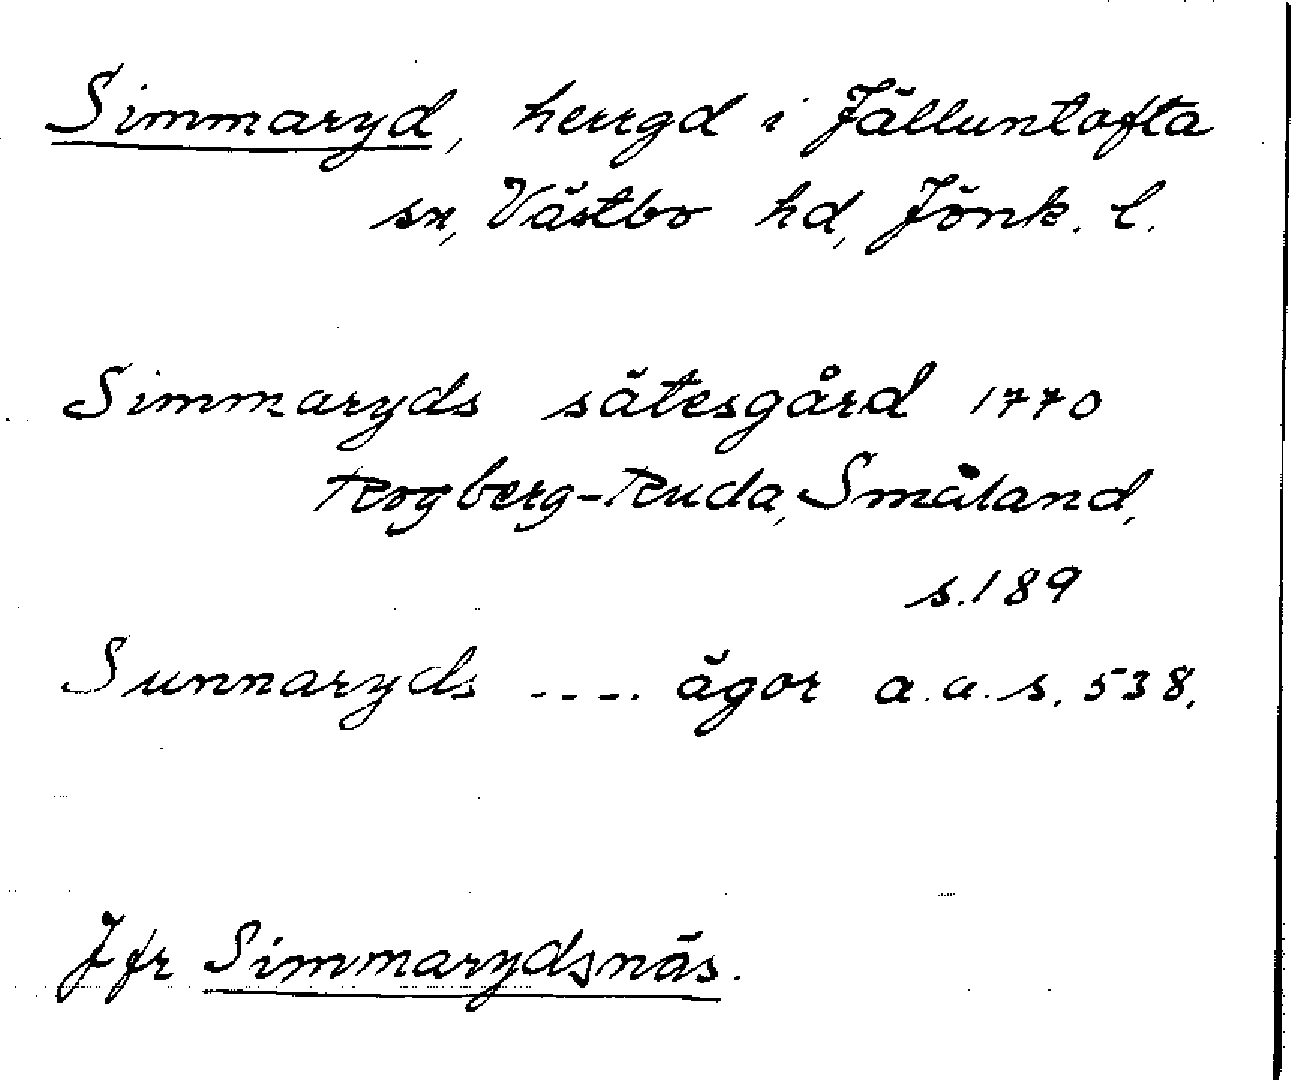 Simmaryd, herrgd i Jälluntofta
sn, Västbo hd, Jönk. l.
Simmaryds sätesgård 1770
Rogberg-Ruda, Småland,
s. 189
Sunnaryds ---. ägor a.a. s. 538.
Jfr Simmarydsnäs.